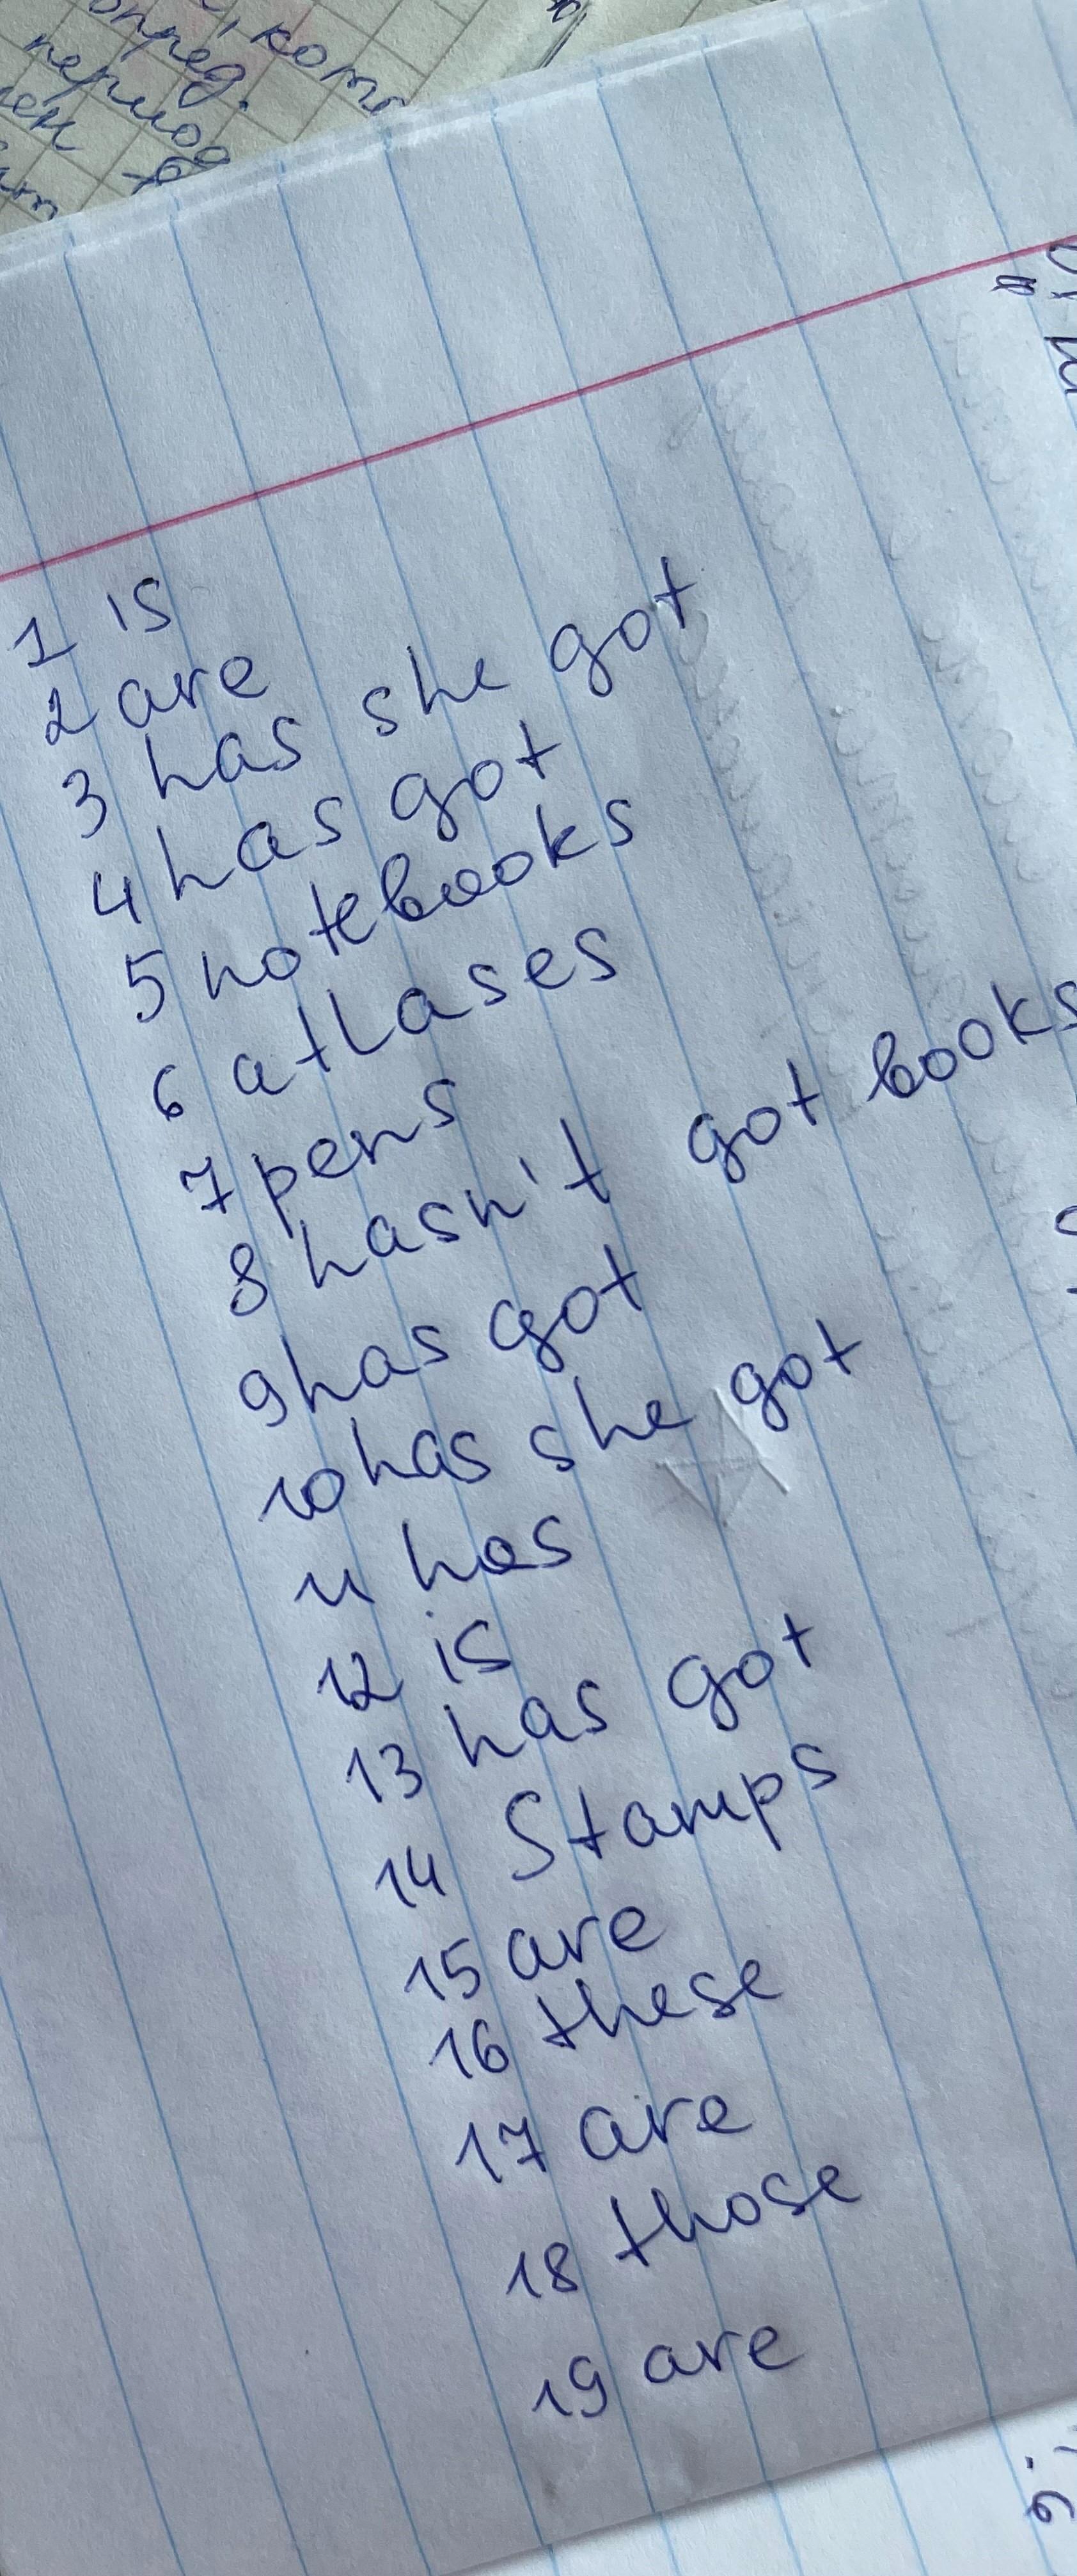 , комп
опред.
период
1 is
2 are
3 has she got
4 has got
5 notebooks
6 atlases
7 pens
8 hasn't got books
9 has got
10 has she got
11 has
12 is
13 has got
14 Stamps
15 are
16 these
17 are
18 those
19 are